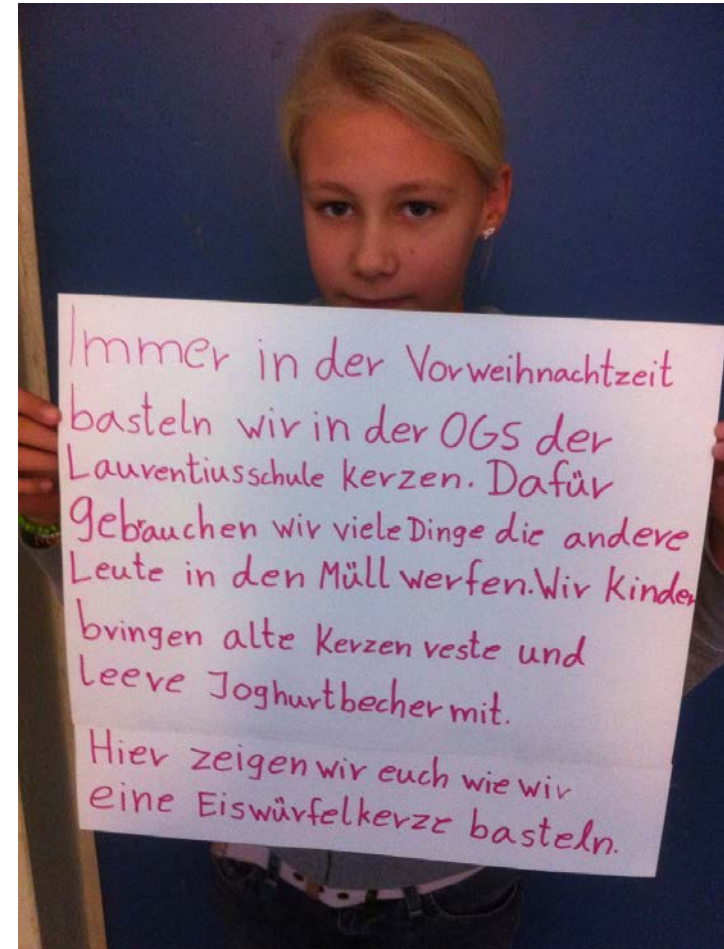 Immer in der Vorweihnachtzeit
basteln wir in der OGS der
Laurentiusschule kerzen. Dafür
gebrauchen wir viele Dinge die andere
Leute in den Müll werfen. Wir kinder
bringen alte Kerzen reste und
leere Joghurtbecher mit.
Hier zeigen wir euch wie wir
eine Eiswürfelkerze basteln.